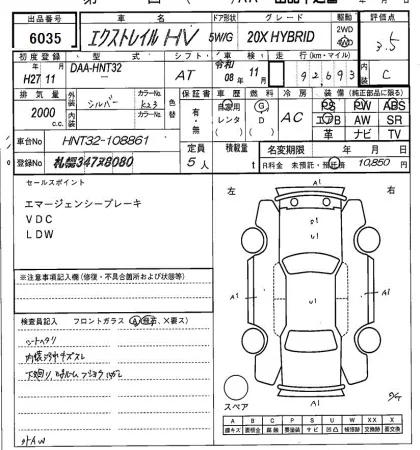 出品番号 車名 ドア形状 グレード 駆動 評価点
6035 エクストレイル HV 5W/G 20X HYBRID 2WD 4WD 3.5
初度登録 型式 シフト 車検 走行(km・マイル) 内装
H27 11 DAA-HNT32 AT 令和 08年 11月 92,693 C
排気量 外装 カラーNo. 色替 保証書 車歴 燃料 冷房 装備(純正部品に限る)
2000 c.c. シルバー K23 有・無 自家用 レンタ G D AC PS PW ABS
内装 カラーNo. エアB AW SR
革 ナビ TV
車台No HNT32-108861 定員 積載量 名変期限 年 月 日
登録No 札幌347ヌ8080 5人 t R料金 未預託・預託済 10,850円
セールスポイント
エマージェンシーブレーキ
VDC
LDW
※注意事項記入欄(修復・不具合箇所および状態等)
検査員記入 フロントガラス(A、飛石、×要ス)
シートヘタリ
内装汚れキズスレ
外AW
左 右
A1
A1 U1 U1 A1
A1
スペア
A B C P S U W X XX
線キズ 要補修 腐蝕 要塗装 サビ 凹凸 補修跡 交換跡 要交換